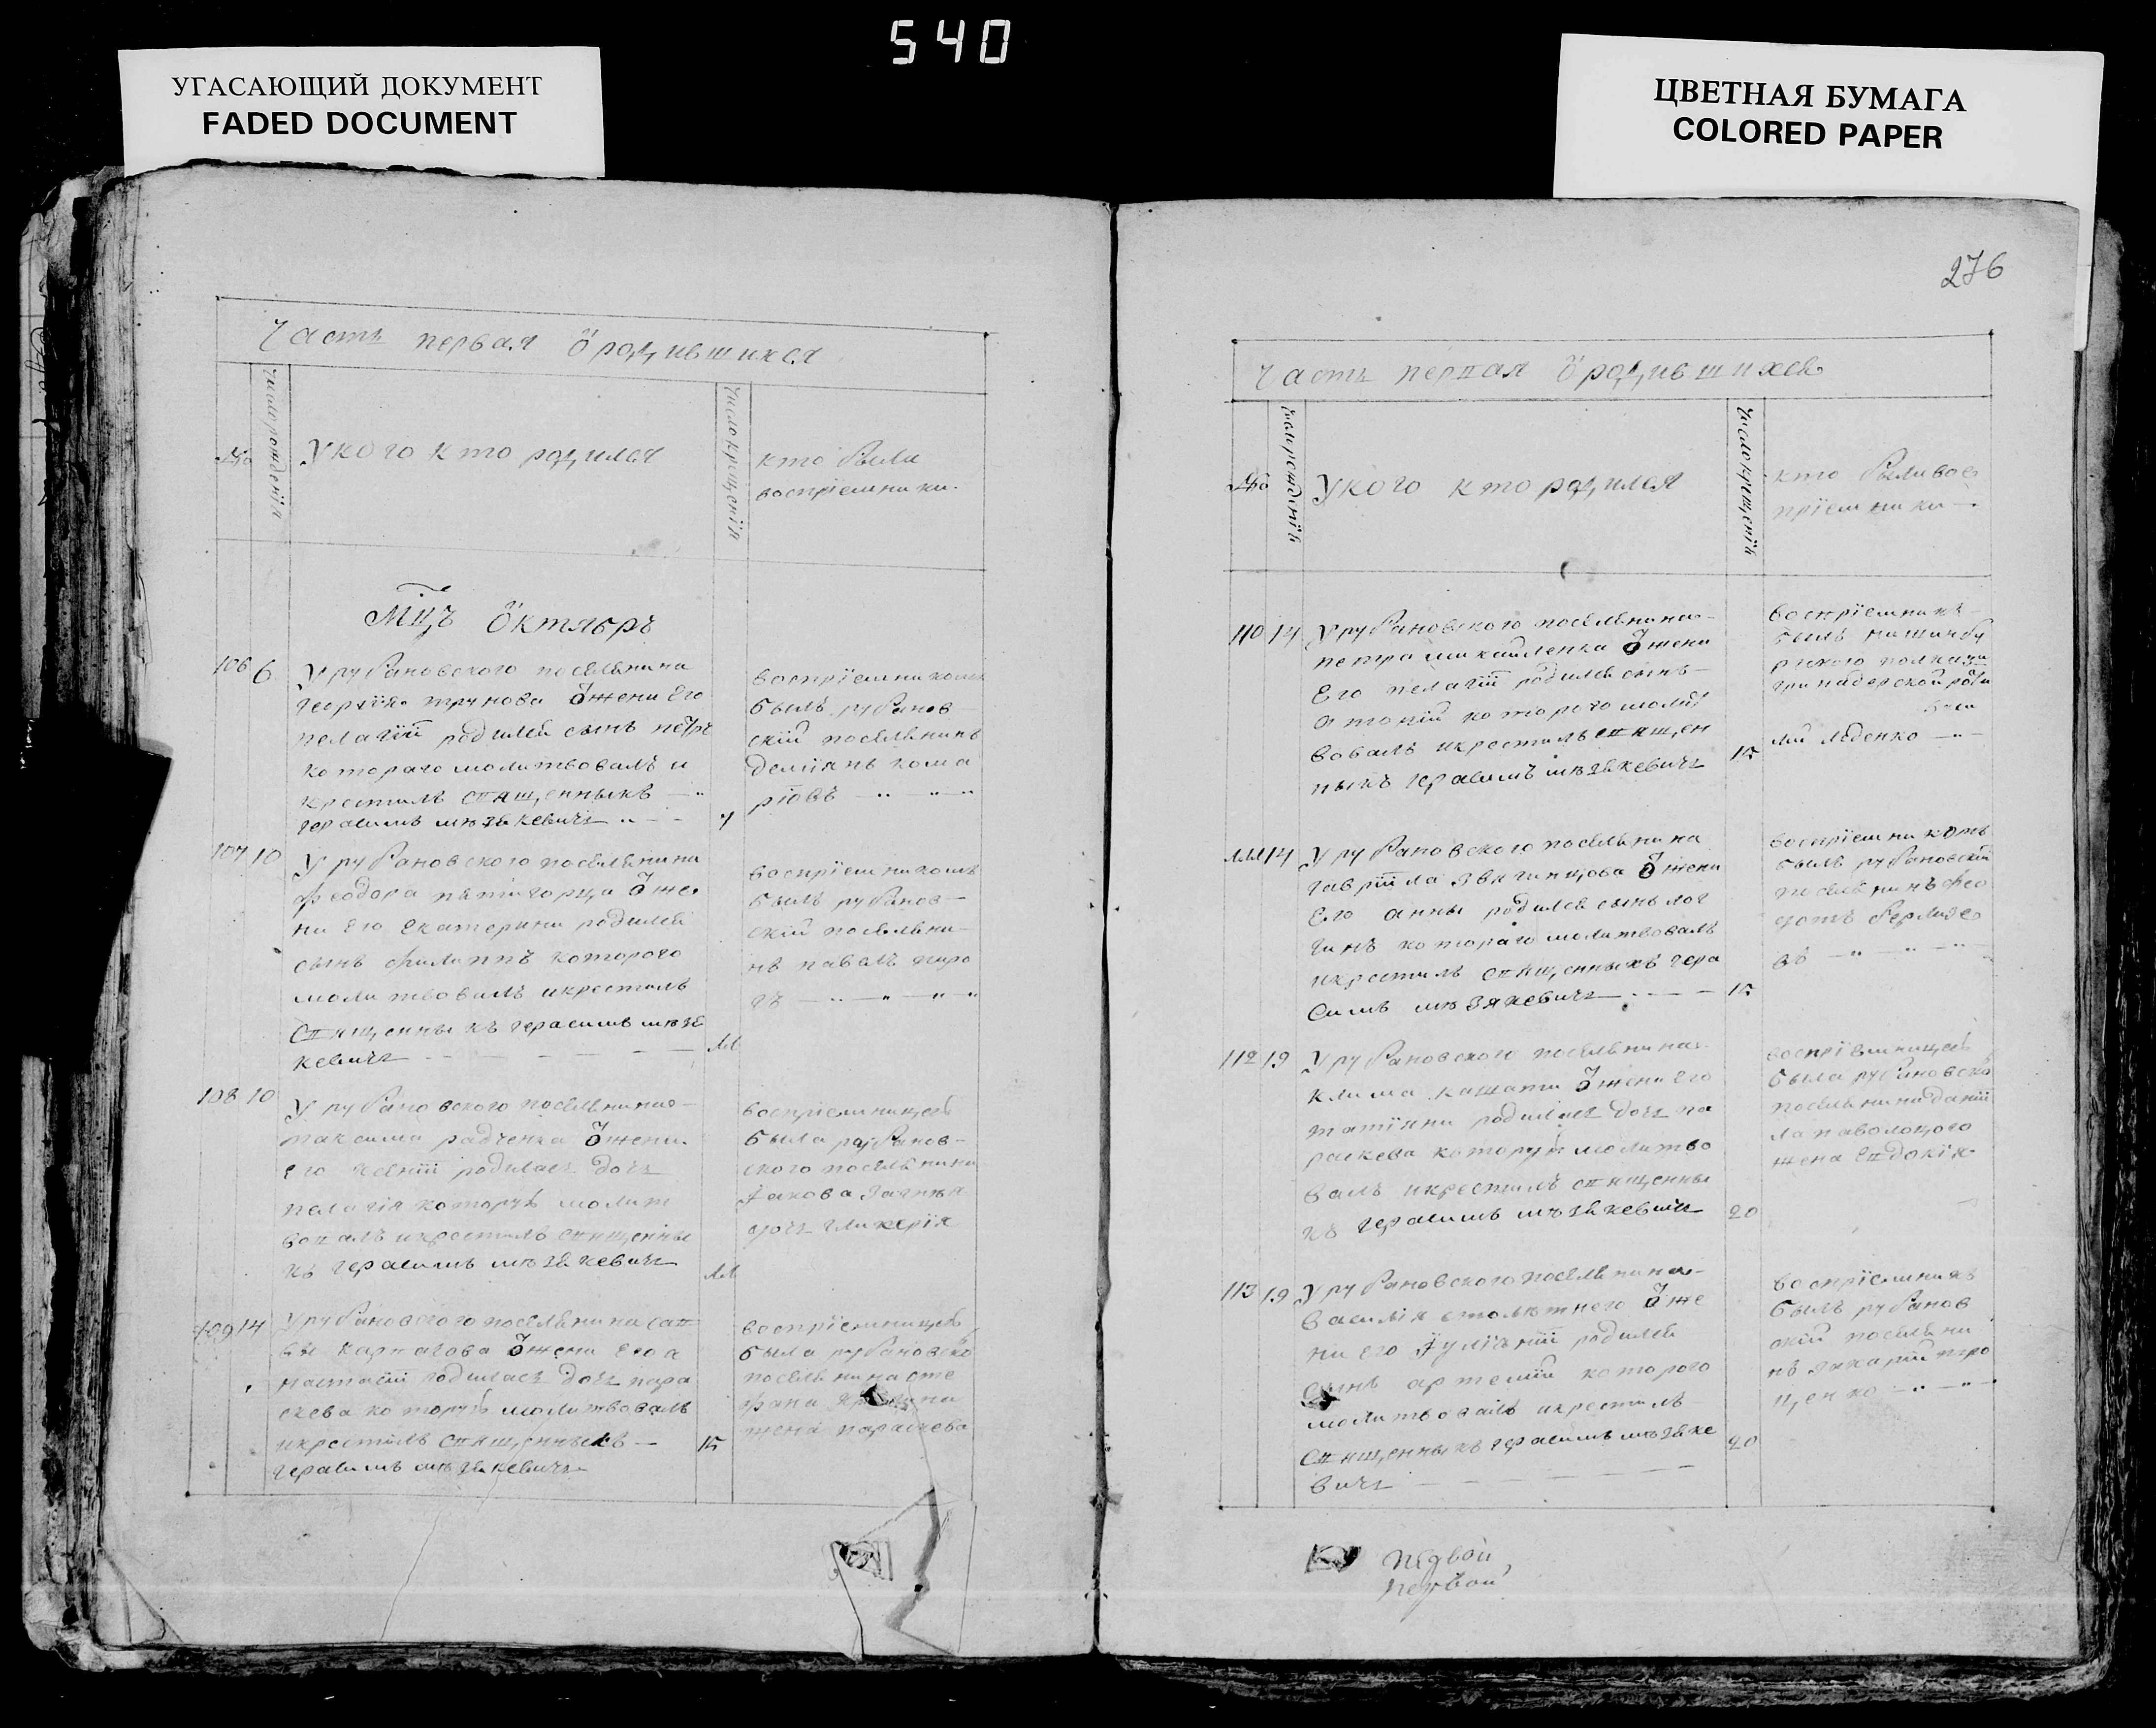 540
УГАСАЮЩИЙ ДОКУМЕНТ
FADED DOCUMENT
ЦВЕТНАЯ БУМАГА
COLORED PAPER
Часть первая ö родившихся
№
число рожденїя
У кого кто родился
число крещенїя
кто были
воспрїемники.
Мцъ öктябръ
106 6
У рубановского поселянина
георгїя трунова ѿ жени Его
пелагїи родился сынъ петръ
которого молитвовалъ и
крестилъ священникъ
герасимъ мѣзякевичъ
7
воспрїемникомъ
былъ рубанов
скїй поселянинъ
демїянъ кома
ровъ
107 10
У рубановского поселянина
феодора пятигорца ѿ же
ни Его Екатерини родился
сынъ филиппъ которого
молитвовалъ и крестилъ
священникъ герасимъ мѣзя
кевичъ
11
воспрїемникомъ
былъ рубанов
скїй поселяни
нъ павелъ
108 10
У рубановского поселянина
максима радченка ѿ жени
его ксенїи родилась дочь
пелагїя которую молит
вовалъ и крестилъ священни
къ герасимъ мѣзякевичъ
11
воспрїемницею
была рубанов
ского поселянина
Iакова
дочь гликерїя
109 14
У рубановского поселянина сав
ви карпачова ѿ жени Его а
настасїи родилась дочь пара
скева которую молитвовалъ
и крестилъ священникъ
герасимъ мѣзякевичъ
15
воспрїемницею
была рубановско
поселянина сте
фана
жена параскева
276
Часть первая ö родившихся
№
число рожденїя
У кого кто родился
число крещенїя
кто были вос
прїемники
110 14
У рубановского поселянина
петра михайленка ѿ жени
Его пелагїи родился сынъ
антонїй которого молит
вовалъ и крестилъ священ
никъ герасимъ мѣзякевичъ
15
воспрїемникъ
былъ
полка
гринадерской роти
леденко
111 14
У рубановского поселянина
гаврїила звягинцова ѿ жени
Его анны родился сынъ лог
гинъ которого молитвовалъ
и крестилъ священникъ гера
симъ мѣзякевичъ
15
воспрїемникомъ
былъ рубановскїй
поселянинъ фео
дотъ
въ
112 19
У рубановского поселянина
клима кашати ѿ жени Его
татїяни родилась дочь па
раскева которую молитво
валъ и крестилъ священни
къ герасимъ мѣзякевичъ
20
воспрїемницею
была рубановско
поселянина данїи
ла наволоцкого
жена Евдокїя
113 19
У рубановского поселянина
василїя столѣтнего ѿ же
ни его Iулїянїи родился
сынъ артемїй которого
молитвовалъ и крестилъ
священникъ герасимъ мѣзяке
вичъ
20
воспрїемникъ
былъ рубанов
скїй поселяни
нъ захарїй про
ценко
первой
первой